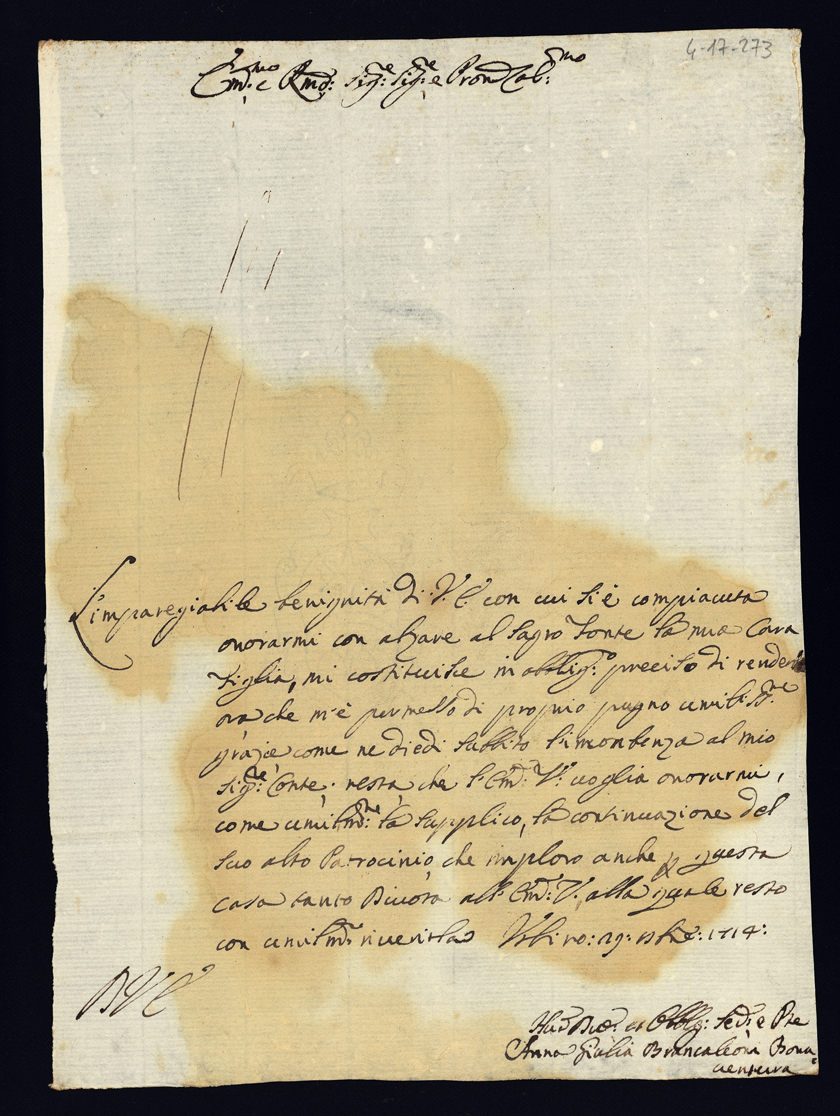 4-17-273
Em.mo e Rmo: Sig.re Sig.re e Pron Col:mo
L'imparegiabile benignità di V. E. con cui si è compiaciuta
onorarmi con alzare al Sagro Fonte la mia Cara
Figlia, mi costituisce in obblig.o preciso di render
ora che m'è permesso di proprio pugno umiliss.me
grazie come ne diedi subbito l'imonbenza al mio
Sig.re Conte; resta che l'Em: V. voglia onorarmi,
come umilm:te la supplico, la continuazione del
suo alto Patrocinio, che imploro anche p questa
casa tanto Divota all' Em: V. alla quale resto
con umilm: riverirla Urbino: 29: 1714:
D V E
Hu: Di: et Obblg: Se: e
Anna Giulia Brancaleoni Bona
ventura